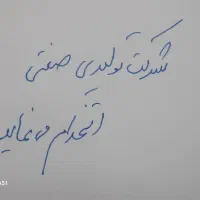 شرکت تولیدی صنعتی
استخدام می نماید
51